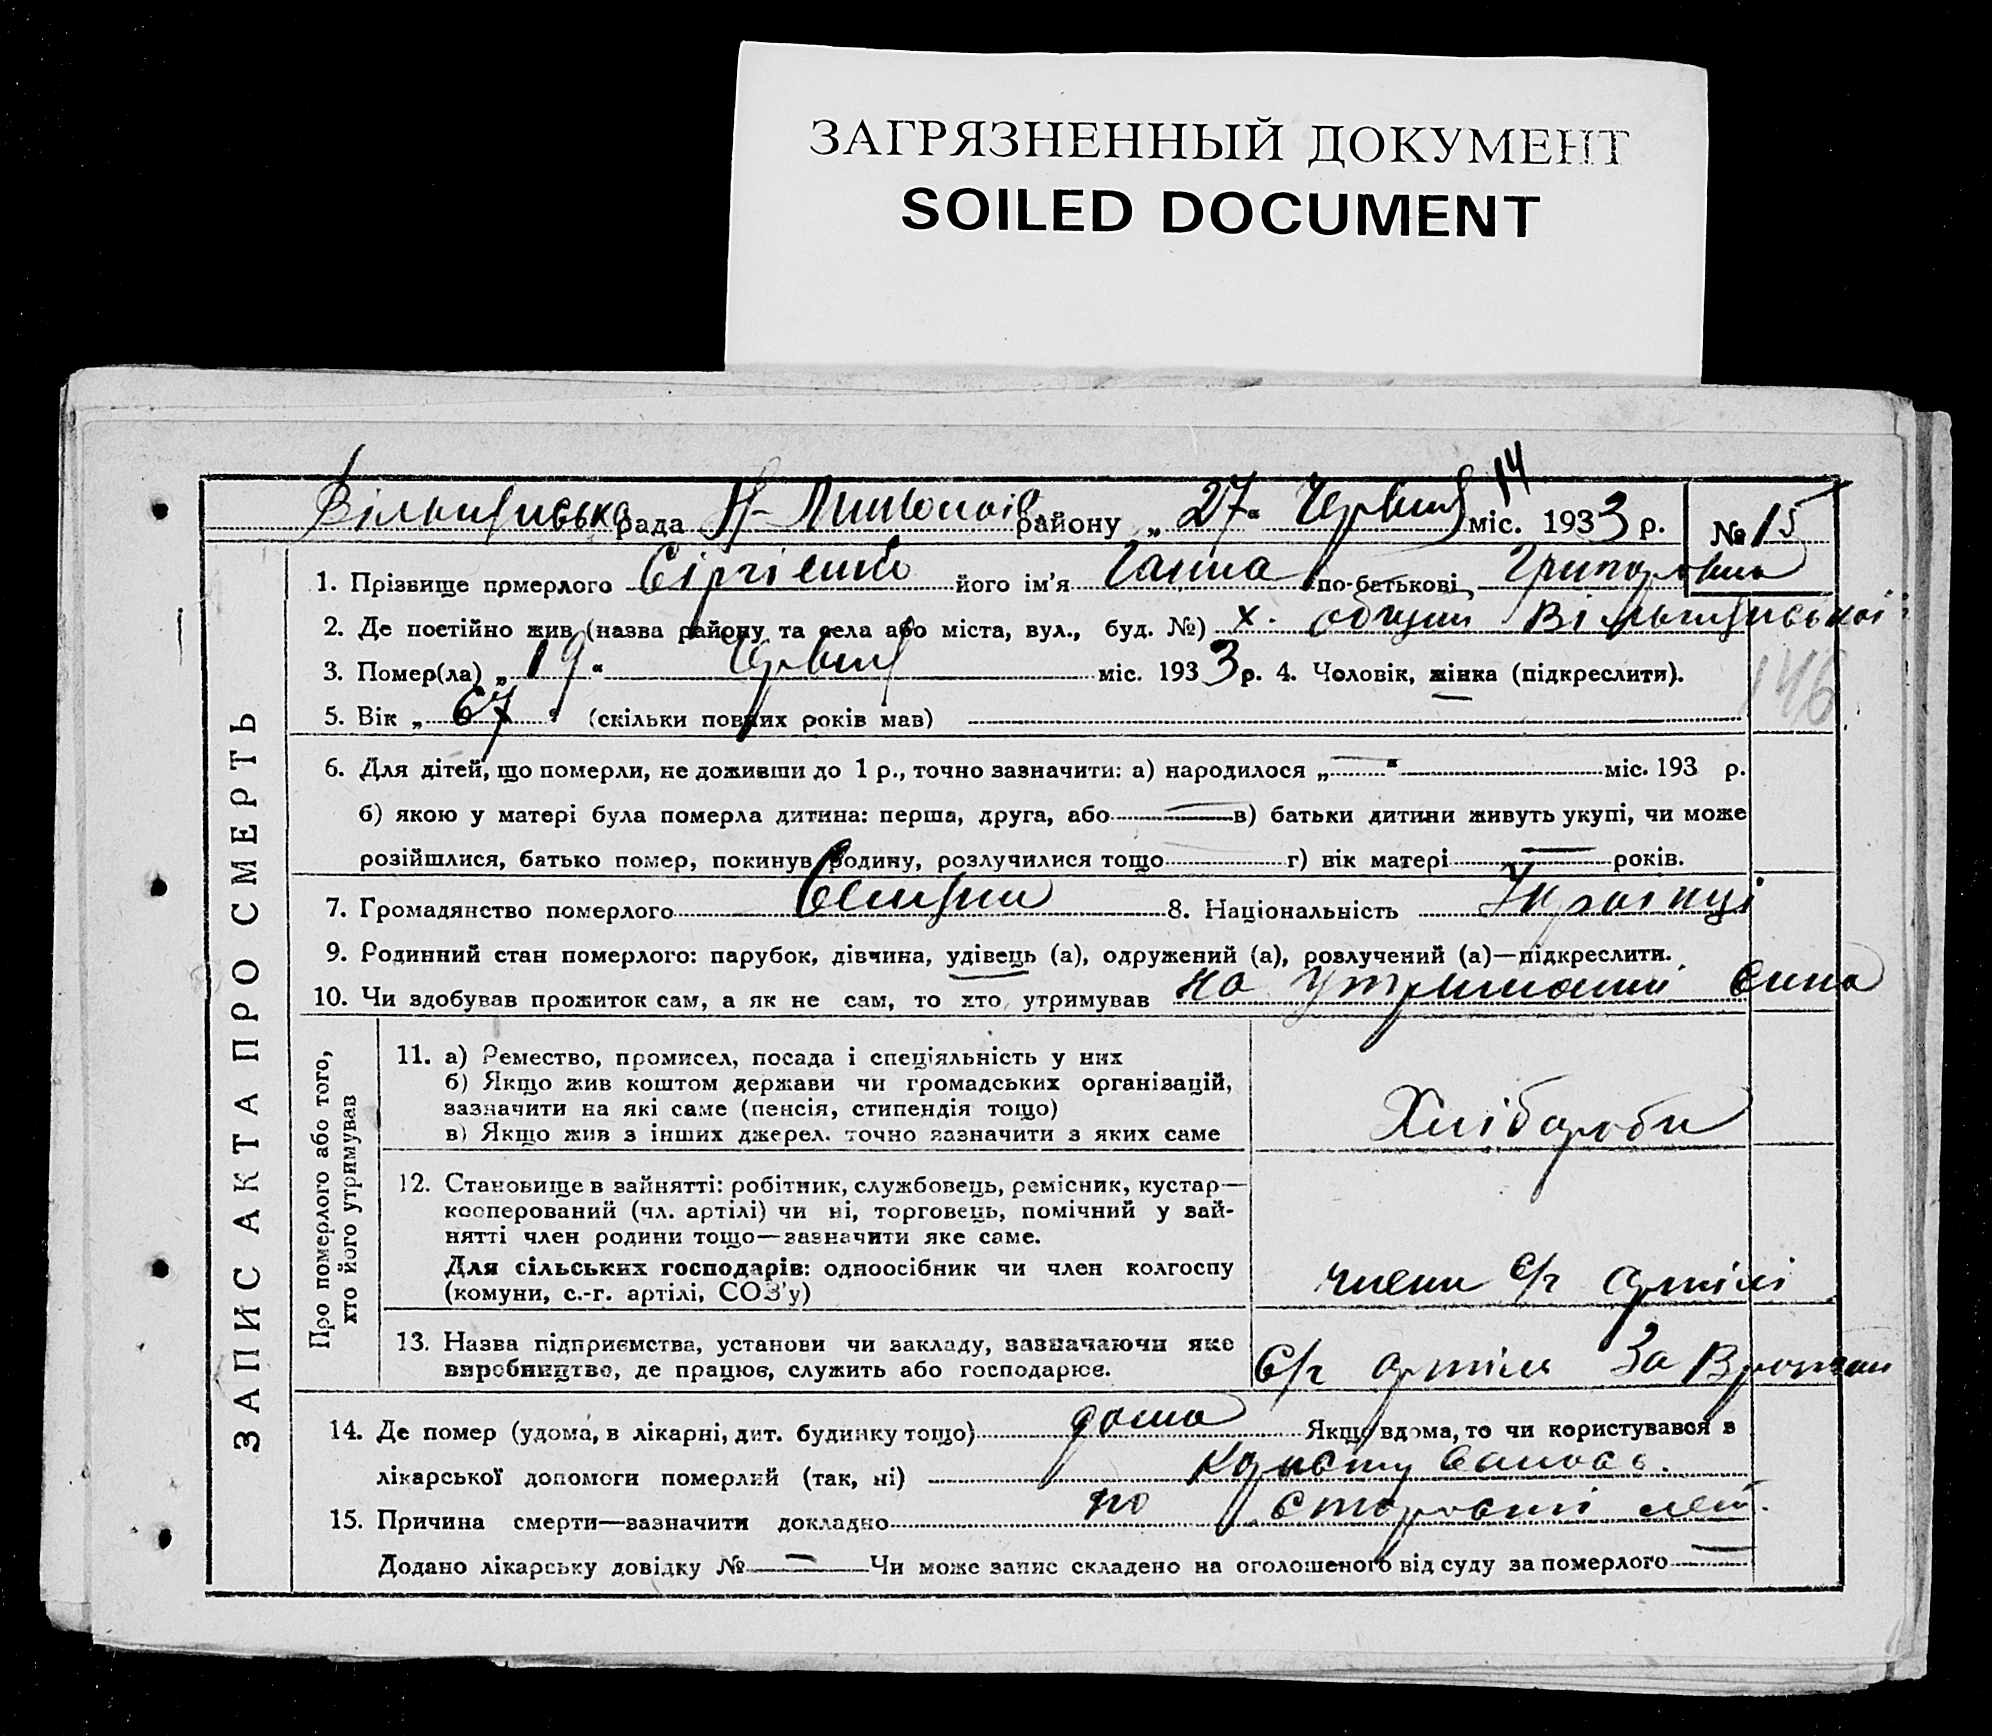 ЗАГРЯЗНЕННЫЙ ДОКУМЕНТ
SOILED DOCUMENT
14
рада Н- району „27“ Червня міс. 1933 р. № 15
ЗАПИС АКТА ПРО СМЕРТЬ
1. Прізвище померлого Сіргієнко його ім'я Ганна по-батькові Григоровна
2. Де постійно жив (назва району та села або міста, вул., буд. №) х.
3. Помер(ла) „19“ Червня міс. 1933 р. 4. Чоловік, жінка (підкреслити).
146
5. Вік „67“ (скільки повних років мав)
6. Для дітей, що померли, не доживши до 1 р., точно зазначити: а) народилося „—“ — міс. 193 р.
б) якою у матері була померла дитина: перша, друга, або — в) батьки дитини живуть укупі, чи може
розійшлися, батько помер, покинув родину, розлучилися тощо г) вік матері — років.
7. Громадянство померлого Селяни 8. Національність Українці
9. Родинний стан померлого: парубок, дівчина, удівець (а), одружений (а), розлучений (а)—підкреслити.
10. Чи здобував прожиток сам, а як не сам, то хто утримував на утриманні сина
Про померлого або того,
хто його утримував
11. а) Ремество, промисел, посада і спеціяльність у них
б) Якщо жив коштом держави чи громадських організацій,
зазначити на які саме (пенсія, стипендія тощо)
в) Якщо жив з інших джерел. точно зазначити з яких саме
Хлібароби
12. Становище в зайнятті: робітник, службовець, ремісник, кустар—
кооперований (чл. артілі) чи ні, торговець, помічний у зай-
нятті член родини тощо—зазначити яке саме.
Для сільських господарів: одноосібник чи член колгоспу
(комуни, с.-г. артілі, СОЗ'у)
члени с/г артілі
13. Назва підприємства, установи чи закладу, зазначаючи яке
виробництво, де працює, служить або господарює.
С/г артіль За Врожаи
14. Де помер (удома, в лікарні, дит. будинку тощо) дома Якщо вдома, то чи користувався в
лікарської допомоги померлий (так, ні) користувалась.
15. Причина смерти—зазначити докладно по старості лет.
Додано лікарську довідку № — Чи може запис складено на оголошеного від суду за померлого —